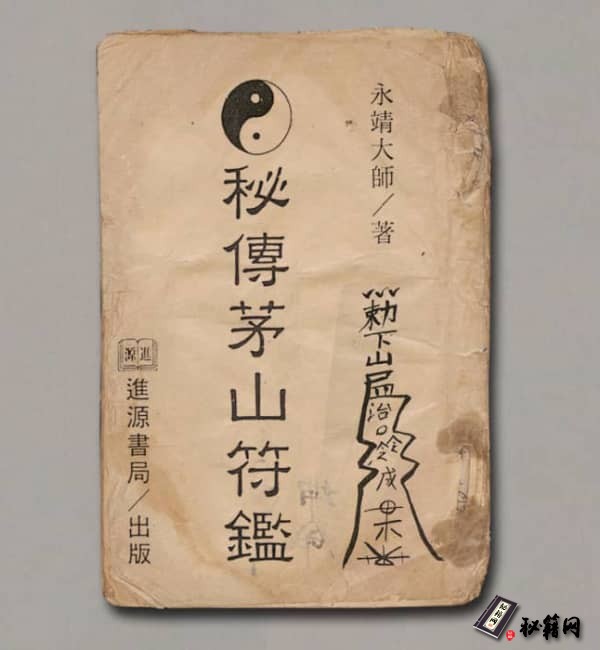 永靖大師／著
秘傳茅山符鑑
進源
進源書局／出版
秘籍网